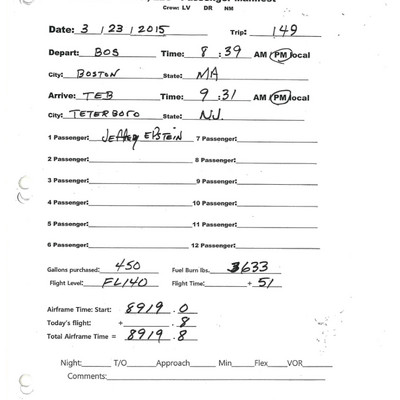 Passenger Manifest
Crew: LV DR NM
Date: 3 / 23 / 2015 Trip: 149
Depart: BOS Time: 8 : 39 AM / PM local
City: BOSTON State: MA
Arrive: TEB Time: 9 : 31 AM / PM local
City: TETERBORO State: N.J.
1 Passenger: JEFFREY EPSTEIN 7 Passenger:
2 Passenger: 8 Passenger:
3 Passenger: 9 Passenger:
4 Passenger: 10 Passenger:
5 Passenger: 11 Passenger:
6 Passenger: 12 Passenger:
Gallons purchased: 450 Fuel Burn lbs. 3633
Flight Level: FL140 Flight Time: + 51
Airframe Time: Start: 8919 . 0
Today's flight: + . 8
Total Airframe Time = 8919 . 8
Night: T/O Approach Min Flex VOR
Comments: